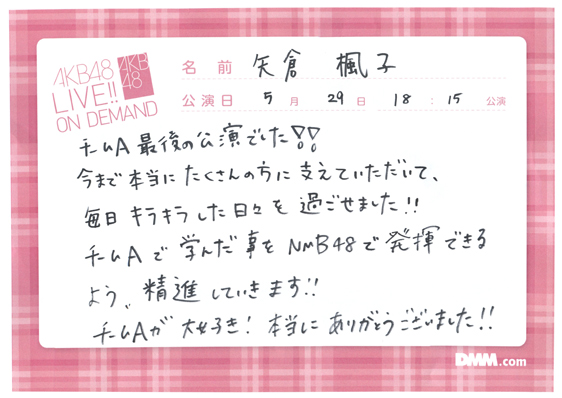 AKB48
LIVE!!
ON DEMAND
AKB
48
名前 矢倉 楓子
公演日 5月 29日 18:15 公演
チームA 最後の公演でした!!
今まで本当にたくさんの方に支えていただいて、
毎日 キラキラした日々を 過ごせました!!
チームAで 学んだ事をNMB48で発揮できる
よう、精進していきます!!
チームAが 大好き! 本当に ありがとうございました!!
DMM.com